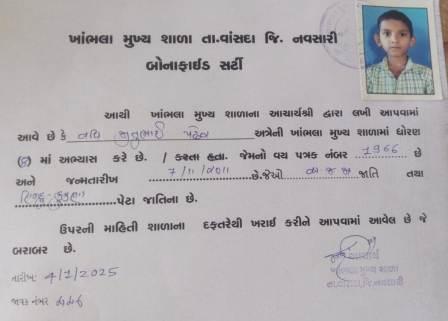 ખાંભલા મુખ્ય શાળા તા.વાંસદા જિ. નવસારી
બોનાફાઈડ સર્ટી
આથી ખાંભલા મુખ્ય શાળાના આચાર્યશ્રી દ્વારા લખી આપવામાં
આવે છે કે રવિ જીતુભાઈ પટેલ અત્રેની ખાંભલા મુખ્ય શાળામાં ધોરણ
માં અભ્યાસ કરે છે. / કરતા હતા. જેમનો વય પત્રક નંબર 1966 છે
અને જન્મતારીખ 7/11/2011 છે.જેઓ જાતિ તથા
હિન્દુ-કુકણા પેટા જાતિના છે.
ઉપરની માહિતી શાળાના દફતરેથી ખરાઈ કરીને આપવામાં આવેલ છે જે
બરાબર છે.
તારીખ 4/1/2025
આચાર્ય
ખાંભલા મુખ્ય શાળા
તા.વાંસદા,જિ.નવસારી
જાવક નંબર